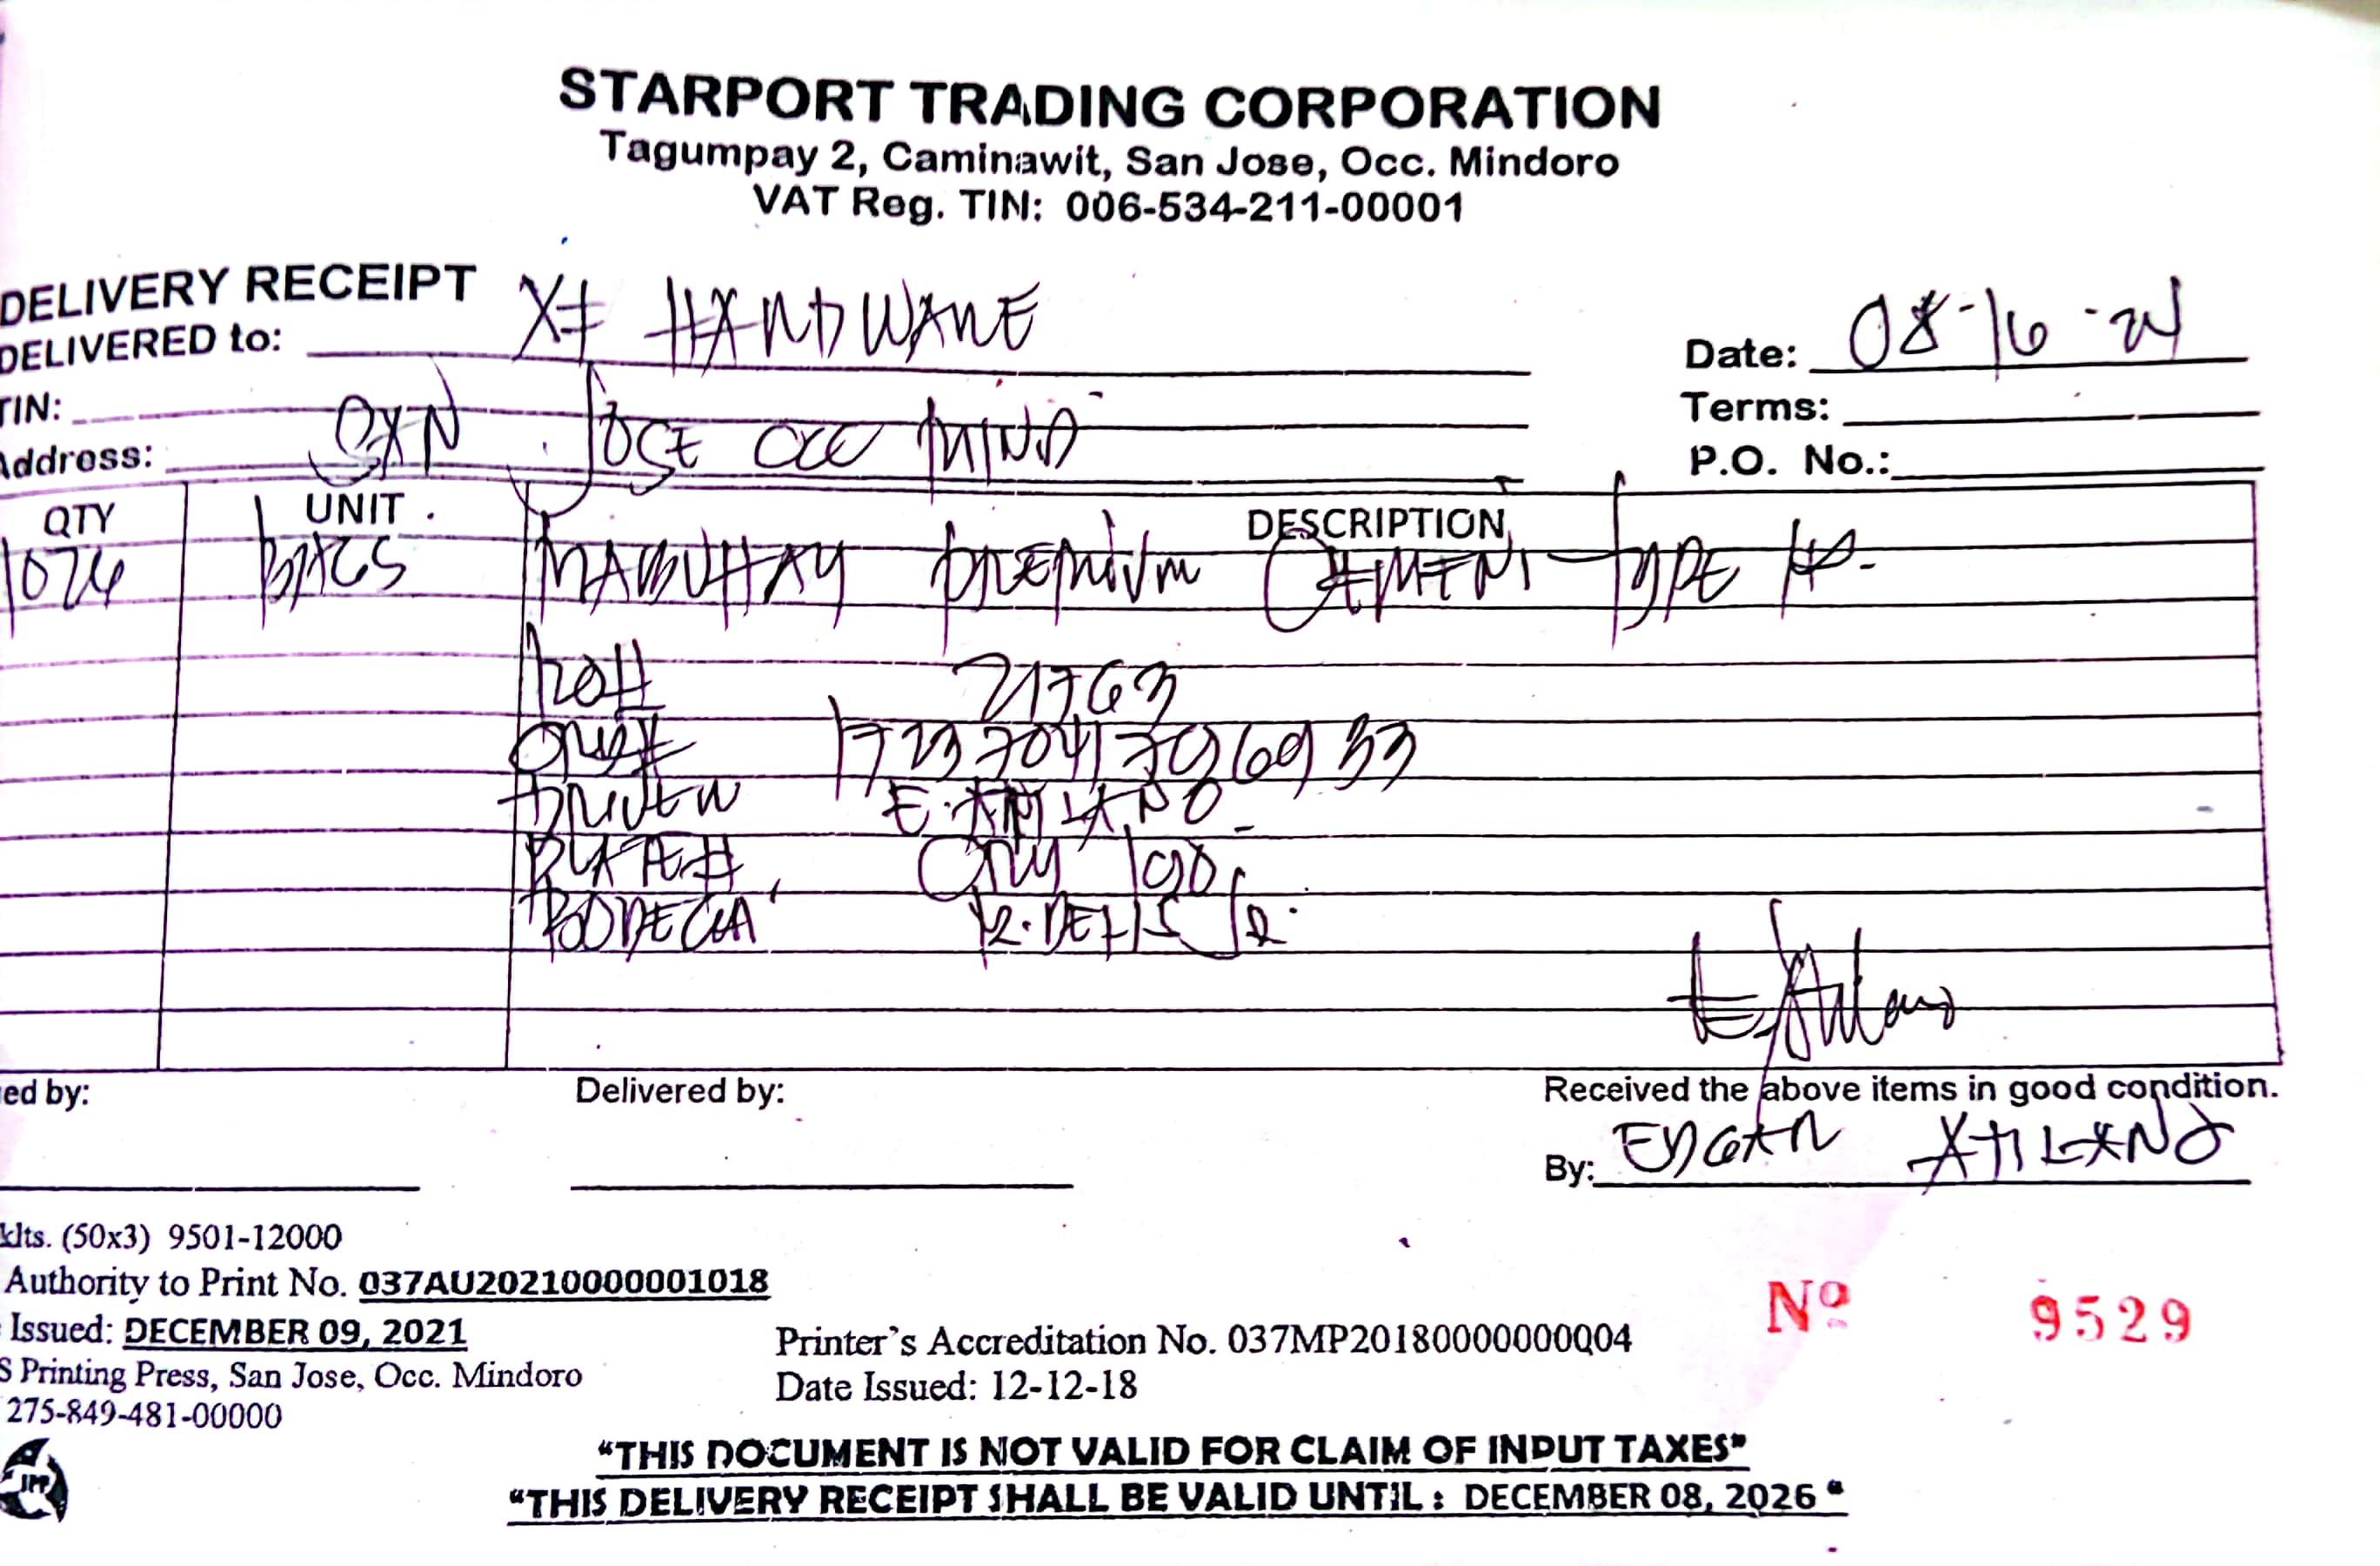 STARPORT TRADING CORPORATION
Tagumpay 2, Caminawit, San Jose, Occ. Mindoro
VAT Reg. TIN: 006-534-211-00001
DELIVERY RECEIPT
DELIVERED to: HARDWARE
Date: 08-16-24
TIN:
Terms:
Address: SAN JOSE OCC MIND
P.O. No.:
QTY UNIT DESCRIPTION
BAGS MABUHAY PREMIUM CEMENT TYPE
21763
DRIVER E. ATILANO
PLATE#
BODEGA
ed by: Delivered by: Received the above items in good condition.
By: EDGAR ATILANO
klts. (50x3) 9501-12000
Authority to Print No. 037AU20210000001018
Issued: DECEMBER 09, 2021
S Printing Press, San Jose, Occ. Mindoro
275-849-481-00000
Printer's Accreditation No. 037MP20180000000004
Date Issued: 12-12-18
Nº 9529
JPP
"THIS DOCUMENT IS NOT VALID FOR CLAIM OF INPUT TAXES"
"THIS DELIVERY RECEIPT SHALL BE VALID UNTIL : DECEMBER 08, 2026 "